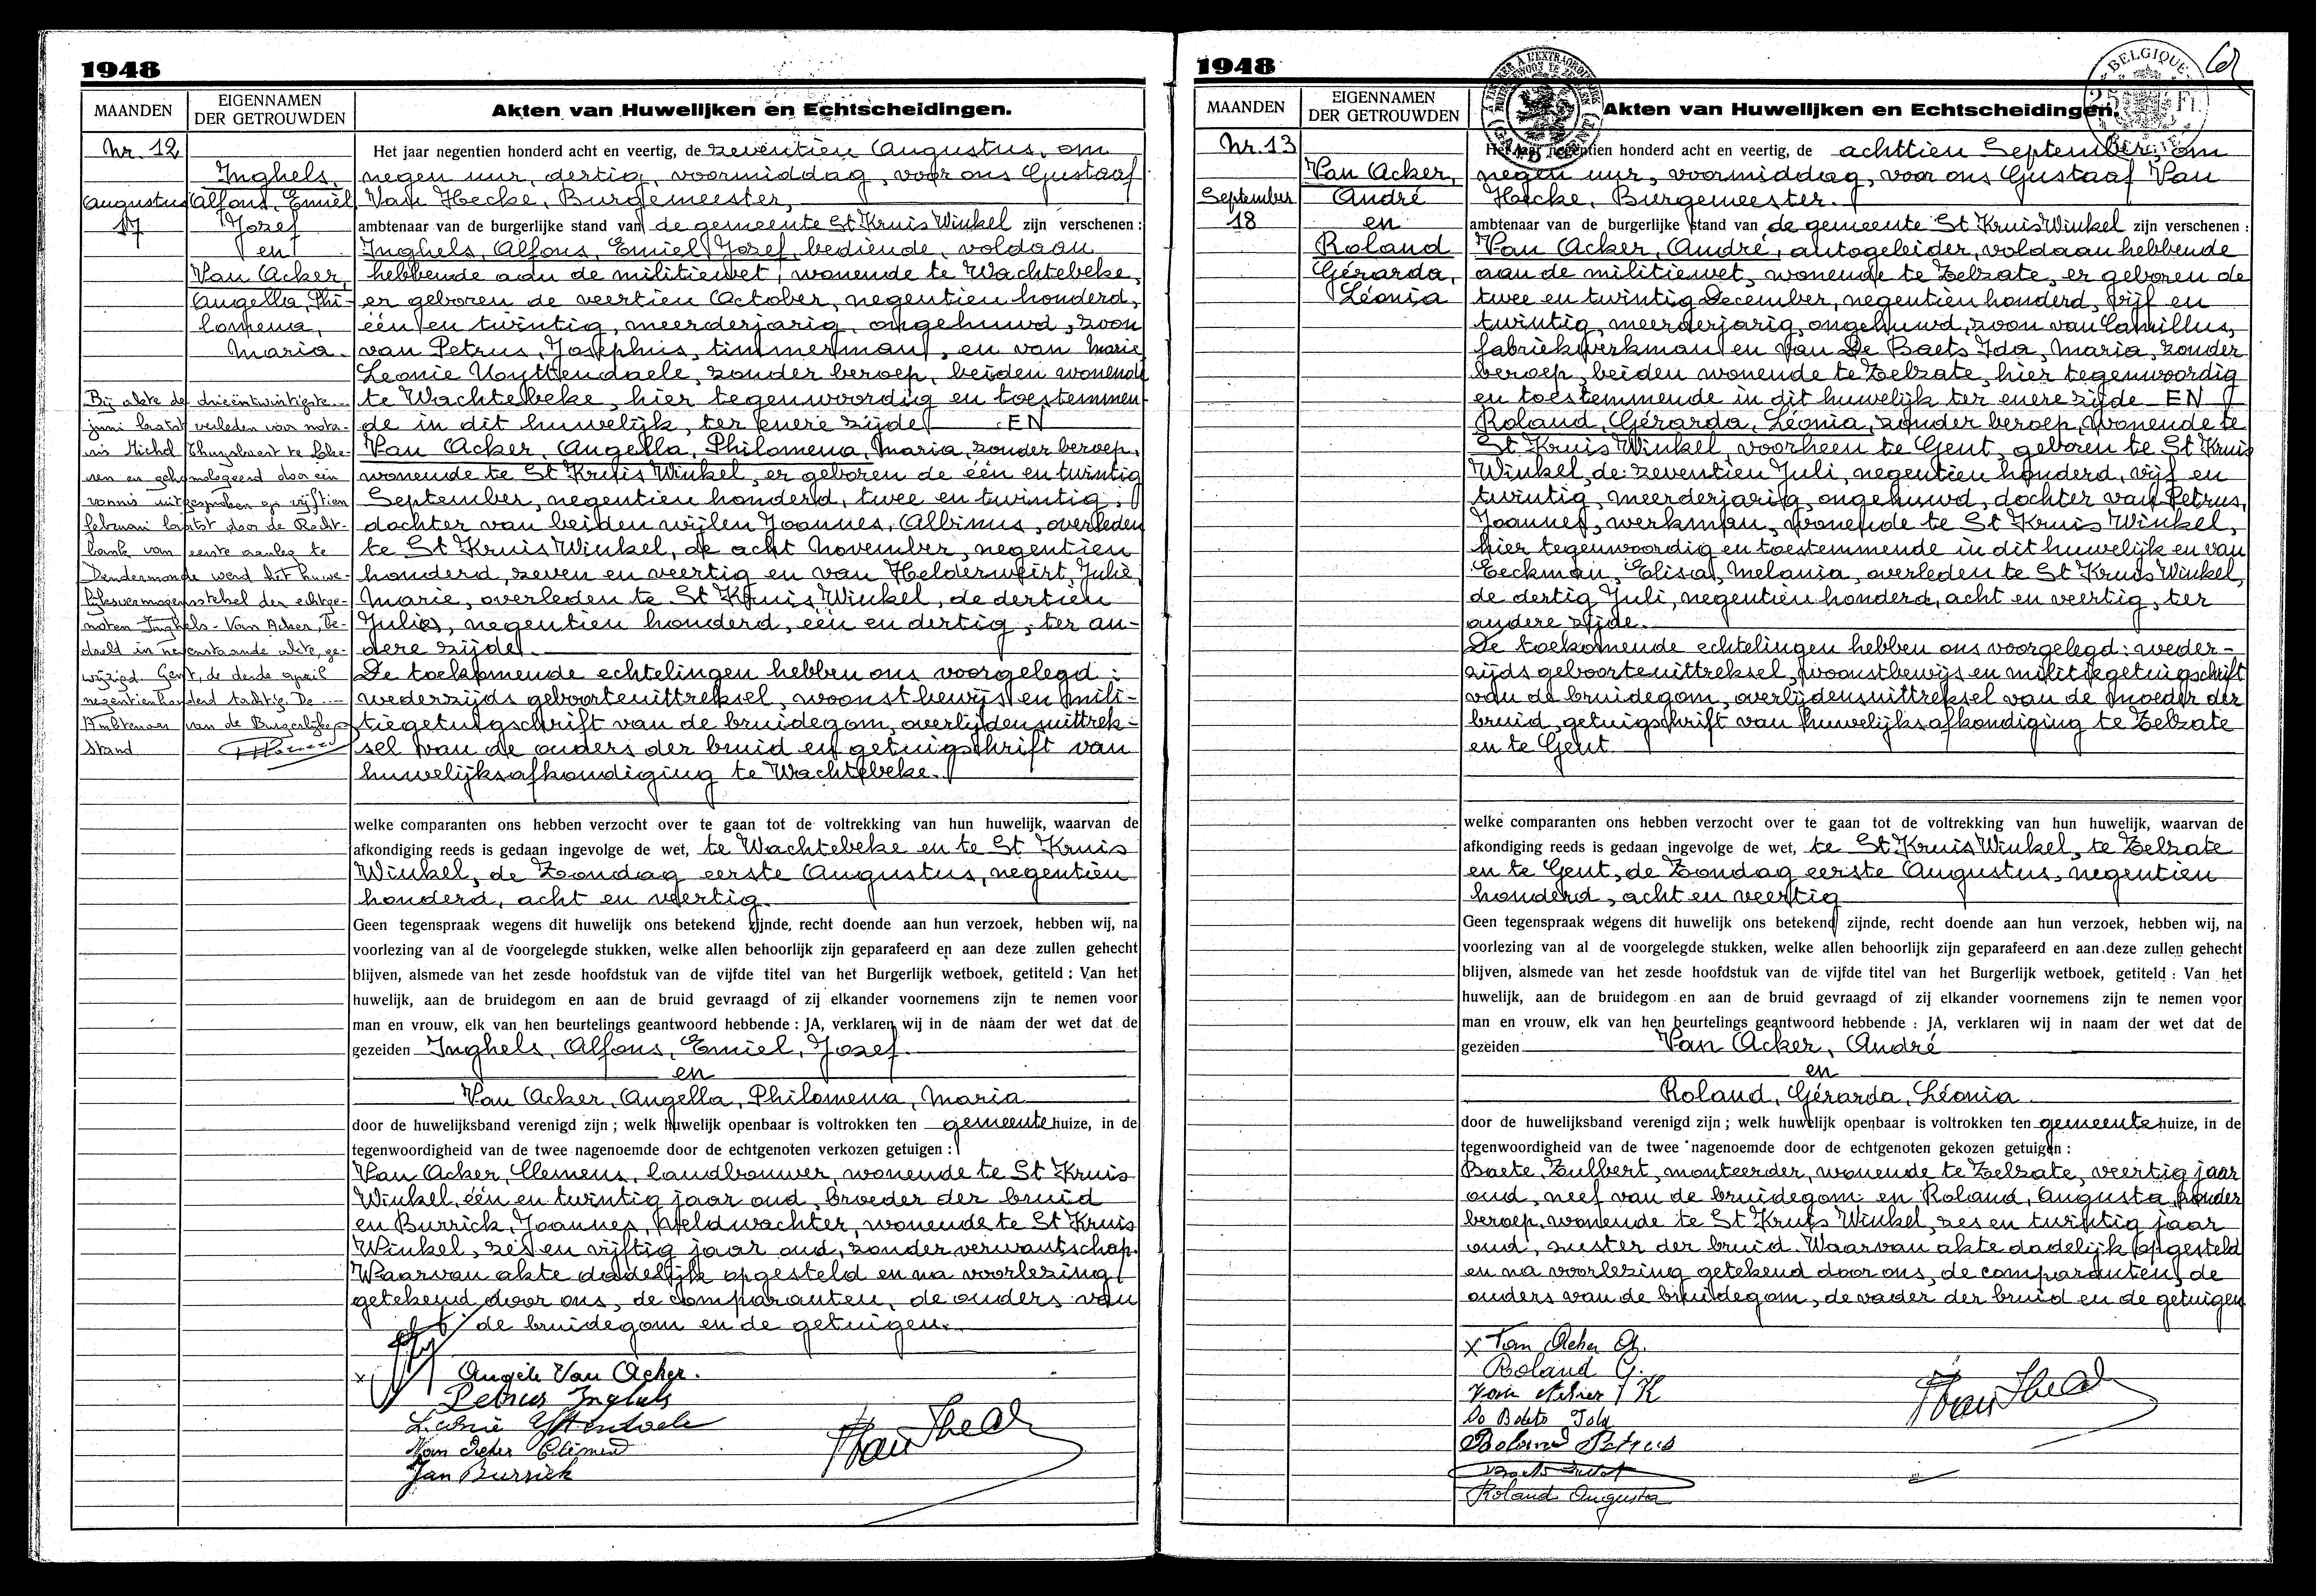 1948
MAANDEN
EIGENNAMEN
DER GETROUWDEN
Akten van Huwelijken en Echtscheidingen.
Nr. 12
Augustus
17
Inghels,
Alfons, Emiel
Jozef
en
Van Acker,
Angella, Phi-
lomena,
Maria.
Bij akte de drieëntwintigste
juni laatst verleden voor nota-
ris Michel Thuysbaert te Loke-
ren en gehomologeerd door een
vonnis uitgesproken op vijftien
februari laatst door de Recht-
bank van eerste aanleg te
Dendermonde werd het huwe-
lijksvermogensstelsel der echtge-
noten Inghels - Van Acker, be-
doeld in nevenstaande akte, ge-
wijzigd. Gent, de derde april
negentienhonderd tachtig. De
Ambtenaar van de Burgerlijke
Stand
Het jaar negentien honderd acht en veertig, de zeventien Augustus, om
negen uur, dertig, voormiddag, voor ons Gustaaf
Van Hecke, Burgemeester,
ambtenaar van de burgerlijke stand van de gemeente St Kruis Winkel zijn verschenen :
Inghels, Alfons, Emiel, Jozef, bediende, voldaan
hebbende aan de militiewet, wonende te Wachtebeke,
er geboren de veertien October, negentien honderd,
één en twintig, meerderjarig, ongehuwd, zoon
van Petrus, Josephus, timmerman, en van Marie
Leonie Uyttendaele, zonder beroep, beiden wonende
te Wachtebeke, hier tegenwoordig en toestemmen-
de in dit huwelijk, ter enere zijde EN
Van Acker, Angella, Philomena, Maria, zonder beroep,
wonende te St Kruis Winkel, er geboren de één en twintig
September, negentien honderd, twee en twintig,
dochter van beiden wijlen Joannes, Albinus, overleden
te St Kruis Winkel, de acht November, negentien
honderd, zeven en veertig en van Helderweirt, Julie,
Marie, overleden te St Kruis Winkel, de dertien
Juli, negentien honderd, één en dertig, ter an-
dere zijde.
De toekomende echtelingen hebben ons voorgelegd :
wederzijds geboorteuittreksel, woonstbewijs en mili-
tiegetuigschrift van de bruidegom, overlijdensuittrek-
sel van de ouders der bruid en getuigschrift van
huwelijksafkondiging te Wachtebeke.
welke comparanten ons hebben verzocht over te gaan tot de voltrekking van hun huwelijk, waarvan de
afkondiging reeds is gedaan ingevolge de wet, te Wachtebeke en te St Kruis
Winkel, de Zondag eerste Augustus, negentien
honderd, acht en veertig.
Geen tegenspraak wegens dit huwelijk ons betekend zijnde, recht doende aan hun verzoek, hebben wij, na
voorlezing van al de voorgelegde stukken, welke allen behoorlijk zijn geparafeerd en aan deze zullen gehecht
blijven, alsmede van het zesde hoofdstuk van de vijfde titel van het Burgerlijk wetboek, getiteld : Van het
huwelijk, aan de bruidegom en aan de bruid gevraagd of zij elkander voornemens zijn te nemen voor
man en vrouw, elk van hen beurtelings geantwoord hebbende : JA, verklaren wij in de naam der wet dat de
gezeiden Inghels, Alfons, Emiel, Jozef.
en
Van Acker, Angella, Philomena, Maria
door de huwelijksband verenigd zijn ; welk huwelijk openbaar is voltrokken ten gemeentehuize, in de
tegenwoordigheid van de twee nagenoemde door de echtgenoten verkozen getuigen :
Van Acker, Clemens, landbouwer, wonende te St Kruis
Winkel, één en twintig jaar oud, broeder der bruid
en Burrick, Joannes, veldwachter, wonende te St Kruis
Winkel, zes en vijftig jaar oud, zonder verwantschap.
Waarvan akte dadelijk opgesteld en na voorlezing
getekend door ons, de comparanten, de ouders van
de bruidegom en de getuigen.
x
Angèle Van Acker.
Petrus Inghels
Leonie Uyttendaele
Van Acker Clement
Jan Burrick
1948
MAANDEN
EIGENNAMEN
DER GETROUWDEN
Akten van Huwelijken en Echtscheidingen.
BELGIQUE
25 Fr
BELGIË
Nr. 13
September
18
Van Acker,
André
en
Roland
Gérarda,
Léonia
Het jaar negentien honderd acht en veertig, de achttien September, om
negen uur, voormiddag, voor ons Gustaaf Van
Hecke, Burgemeester.
ambtenaar van de burgerlijke stand van de gemeente St Kruis Winkel zijn verschenen :
Van Acker, André, autogeleider, voldaan hebbende
aan de militiewet, wonende te Zelzate, er geboren de
twee en twintig December, negentien honderd, vijf en
twintig, meerderjarig, ongehuwd, zoon van Camillus,
fabriekwerkman en van De Baets Ida, Maria, zonder
beroep, beiden wonende te Zelzate, hier tegenwoordig
en toestemmende in dit huwelijk ter enere zijde EN
Roland, Gérarda, Léonia, zonder beroep, wonende te
St Kruis Winkel, voorheen te Gent, geboren te St Kruis
Winkel, de zeventien Juli, negentien honderd, vijf en
twintig, meerderjarig, ongehuwd, dochter van Petrus,
Joannes, werkman, wonende te St Kruis Winkel,
hier tegenwoordig en toestemmende in dit huwelijk en van
Eeckman, Elisa, Melania, overleden te St Kruis Winkel,
de dertig Juli, negentien honderd, acht en veertig, ter
andere zijde.
De toekomende echtelingen hebben ons voorgelegd : weder-
zijds geboorteuittreksel, woonstbewijs en militiegetuigschrift
van de bruidegom, overlijdensuittreksel van de moeder der
bruid, getuigschrift van huwelijksafkondiging te Zelzate
en te Gent.
welke comparanten ons hebben verzocht over te gaan tot de voltrekking van hun huwelijk, waarvan de
afkondiging reeds is gedaan ingevolge de wet, te St Kruis Winkel, te Zelzate
en te Gent, de Zondag eerste Augustus, negentien
honderd, acht en veertig
Geen tegenspraak wegens dit huwelijk ons betekend zijnde, recht doende aan hun verzoek, hebben wij, na
voorlezing van al de voorgelegde stukken, welke allen behoorlijk zijn geparafeerd en aan deze zullen gehecht
blijven, alsmede van het zesde hoofdstuk van de vijfde titel van het Burgerlijk wetboek, getiteld : Van het
huwelijk, aan de bruidegom en aan de bruid gevraagd of zij elkander voornemens zijn te nemen voor
man en vrouw, elk van hen beurtelings geantwoord hebbende : JA, verklaren wij in naam der wet dat de
gezeiden Van Acker, André
en
Roland, Gérarda, Léonia
door de huwelijksband verenigd zijn ; welk huwelijk openbaar is voltrokken ten gemeentehuize, in de
tegenwoordigheid van de twee nagenoemde door de echtgenoten gekozen getuigen :
Baete, Zulbert, monteerder, wonende te Zelzate, veertig jaar
oud, neef van de bruidegom en Roland, Augusta, zonder
beroep, wonende te St Kruis Winkel, zes en twintig jaar
oud, zuster der bruid. Waarvan akte dadelijk opgesteld
en na voorlezing getekend door ons, de comparanten, de
ouders van de bruidegom, de vader der bruid en de getuigen
x Van Acker A.
Roland G.
Van Acker K
De Baets Ida
Roland Petrus
Roland Augusta